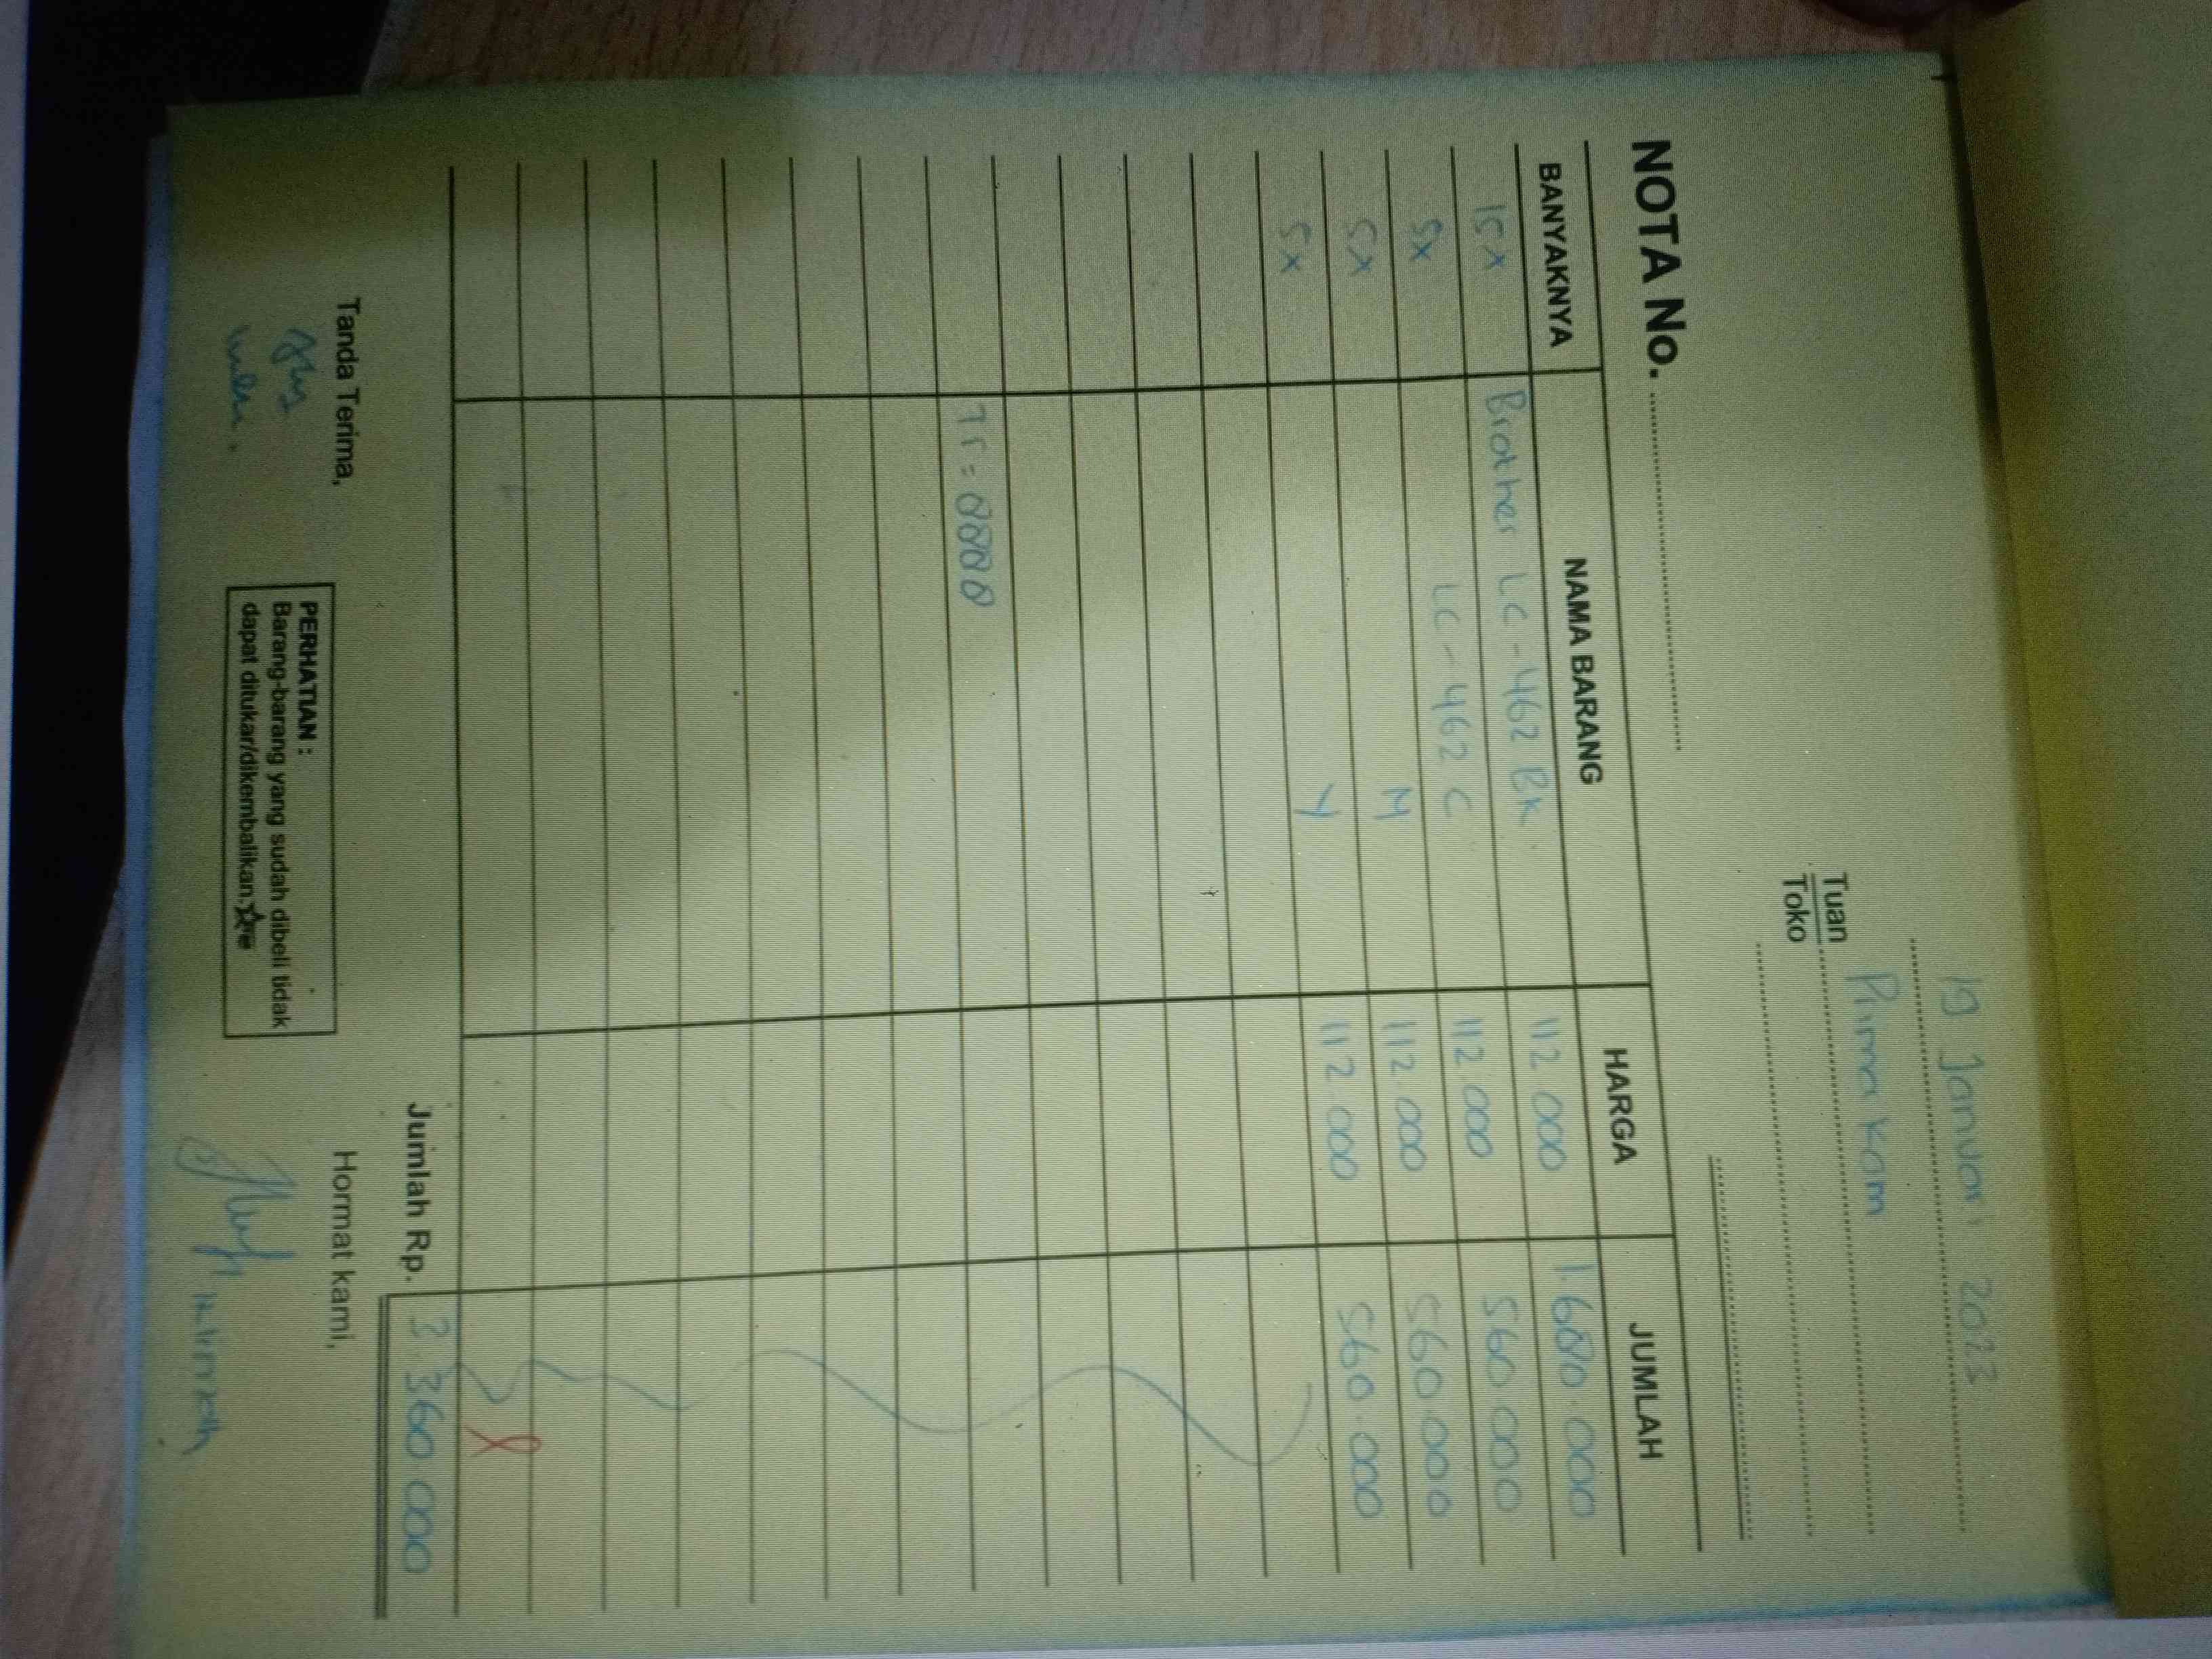 19 Januari 2023
Tuan Prima Kom
Toko
NOTA No.
BANYAKNYA NAMA BARANG HARGA JUMLAH
15x Brother LC-462 BK 112.000 1.680.000
5x LC-462 C 112.000 560.000
5x M 112.000 560.000
5x Y 112.000 560.000
Jumlah Rp. 3.360.000
Tanda Terima,
Hormat kami,
PERHATIAN :
Barang-barang yang sudah dibeli tidak
dapat ditukar/dikembalikan.